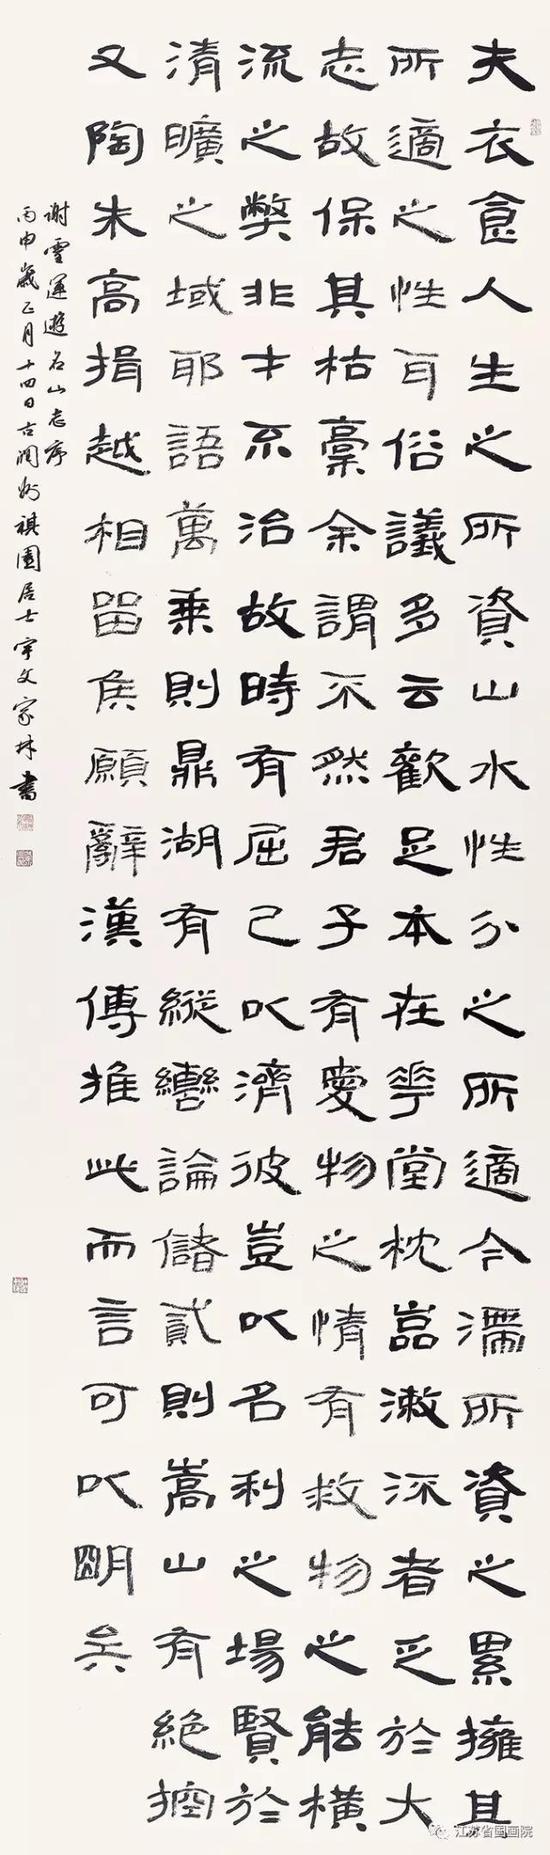 夫衣食人生之所資山水性分之所適今滯所資之累擁其
所適之性耳俗議多云歡足本在華堂枕嵓漱流者乏於大
志故保其枯槀余謂不然君子有愛物之情有救物之能橫
流之弊非才不治故時有屈己以濟彼豈以名利之場賢於
清曠之域耶語萬乘則鼎湖有縱轡論儲貳則嵩山有絕控
又陶朱高揖越相留侯願辭漢傅推此而言可以明矣
谢靈運遊名山志序
丙申歲正月十四日古潤州祺園居士宇文家林書
江苏省国画院